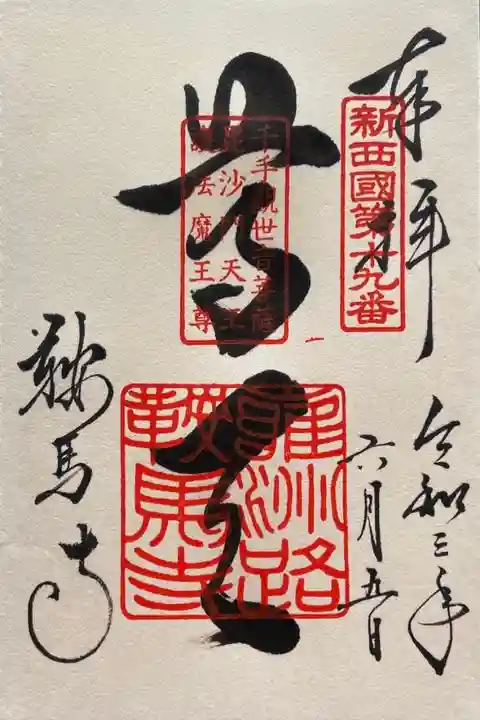 奉拝
新西國第十九番
令和三年
六月五日
千手觀世音菩薩
毘沙門天王
護法魔王尊
尊天
雍州路
鞍馬寺
鞍馬寺